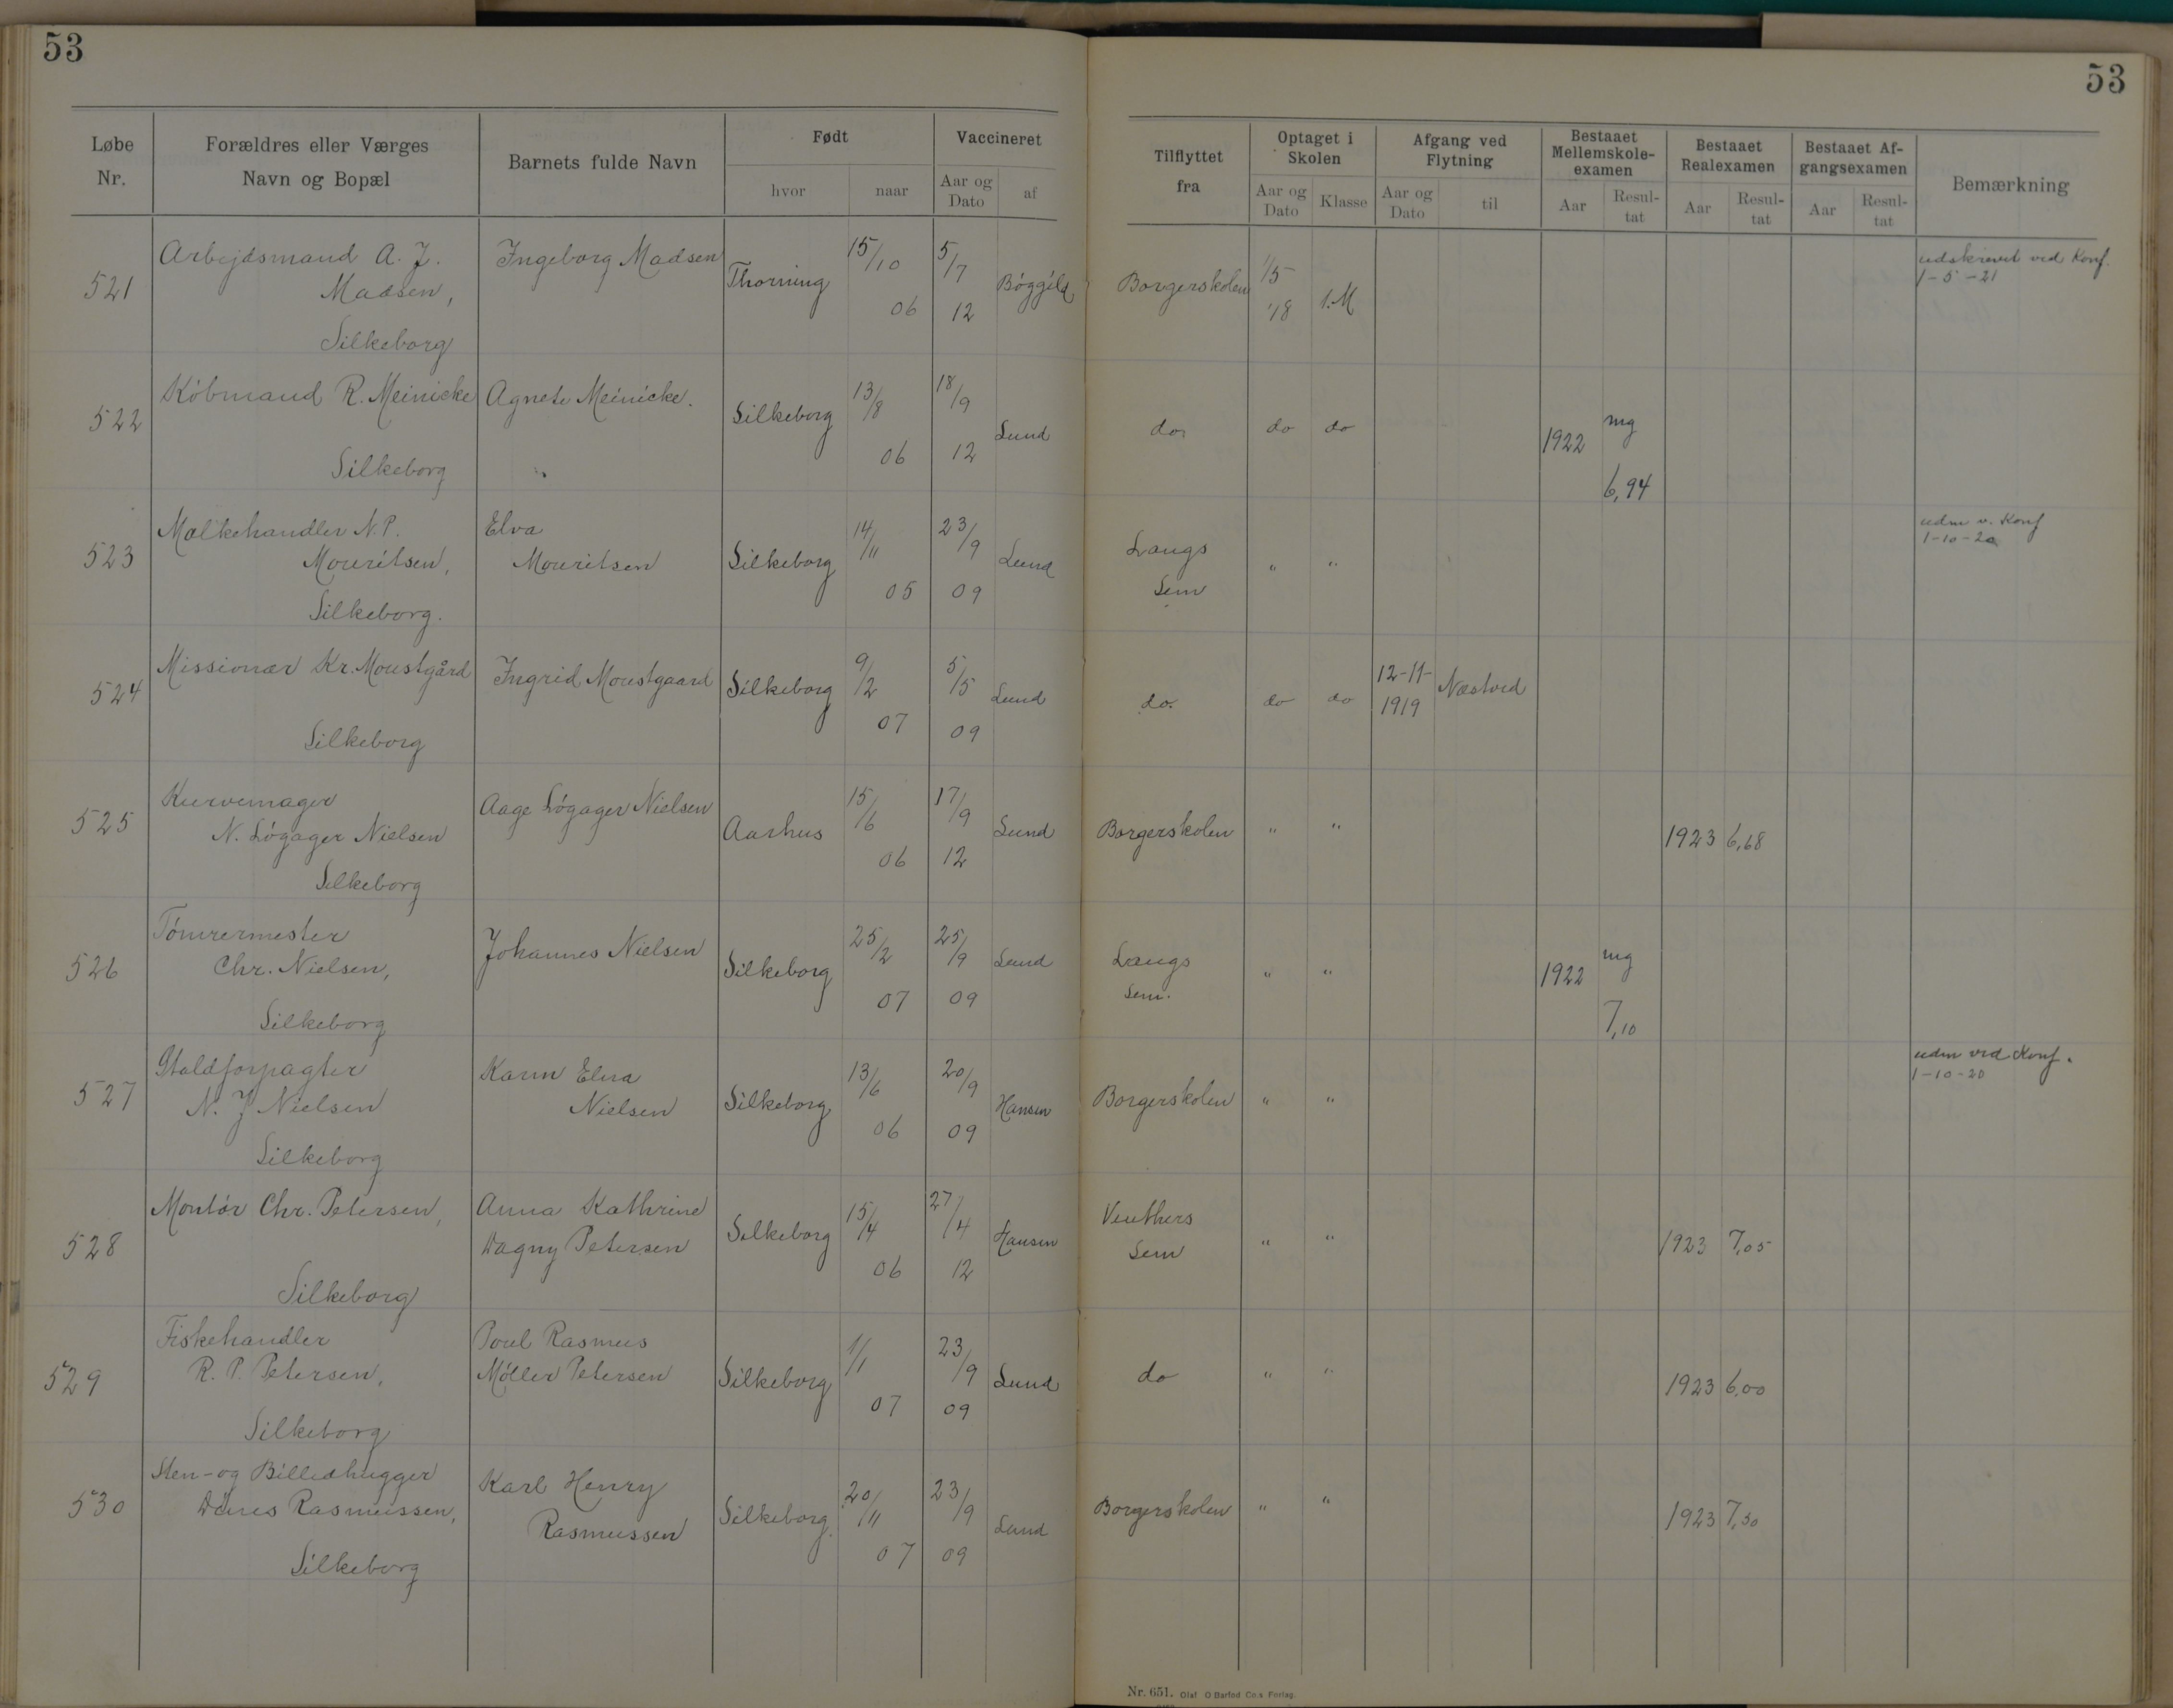 53
53
Løbe Nr.
Forældres eller Værges Navn og Bopæl
Barnets fulde Navn
Født
hvor
naar
Vaccineret
Aar og Dato
af
Tilflyttet fra
Optaget i Skolen
Aar og Dato
Klasse
Afgang ved Flytning
Aar og Dato
til
Bestaaet Mellemskole-examen
Aar
Resul-tat
Bestaaet Realexamen
Aar
Resul-tat
Bestaaet Af-gangsexamen
Aar
Resul-tat
Bemærkning
521 Arbejdsmand A. J. Ingeborg Madsen Thorning 15/10 06 5/7 12 Bøggild Borgerskolen 1/5 18 1. M udskrevet ved Konf.
Madsen, 1-5-21
Silkeborg
522 Købmand R. Meinicke Agnete Meinicke. Silkeborg 13/8 06 18/9 12 Lund do. do do 1922 mg 6,94
Silkeborg
523 Mælkehandler N. P. Elva Silkeborg 14/11 05 23/9 09 Lund Langs Sem " " udm v. Konf
Mouritsen, Mouritsen 1-10-20
Silkeborg.
524 Missionær Kr. Moustgård Ingrid Moustgaard Silkeborg 9/2 07 5/5 09 Lund do. do do 12-11-1919 Næstved
Silkeborg
525 Kurvemager Aage Løgager Nielsen Aarhus 15/6 06 17/9 12 Lund Borgerskolen " " 1923 6,68
N. Løgager Nielsen
Silkeborg
526 Tømrermester Johannes Nielsen Silkeborg 25/2 07 25/9 09 Lund Langs Sem. " " 1922 mg 7,10
Chr. Nielsen,
Silkeborg
527 Staldforpagter Karen Elna Silkeborg 13/6 06 20/9 09 Hansen Borgerskolen " " udm ved Konf.
N. J Nielsen Nielsen 1-10-20
Silkeborg
528 Montør Chr. Petersen, Anna Kathrine Silkeborg 15/4 06 27/4 12 Hansen Venthers Sem " " 1923 7,05
Dagny Petersen
Silkeborg
529 Fiskehandler Poul Rasmus Silkeborg 1/1 07 23/9 09 Lund do " " 1923 6,00
R. P. Petersen, Møller Petersen
Silkeborg
530 Sten- og Billedhugger Karl Henry Silkeborg. 20/11 07 23/9 09 Lund Borgerskolen " " 1923 7,30
Rasmussen, Rasmussen
Silkeborg
Nr. 651. Olaf O Barfod Co.s Forlag.